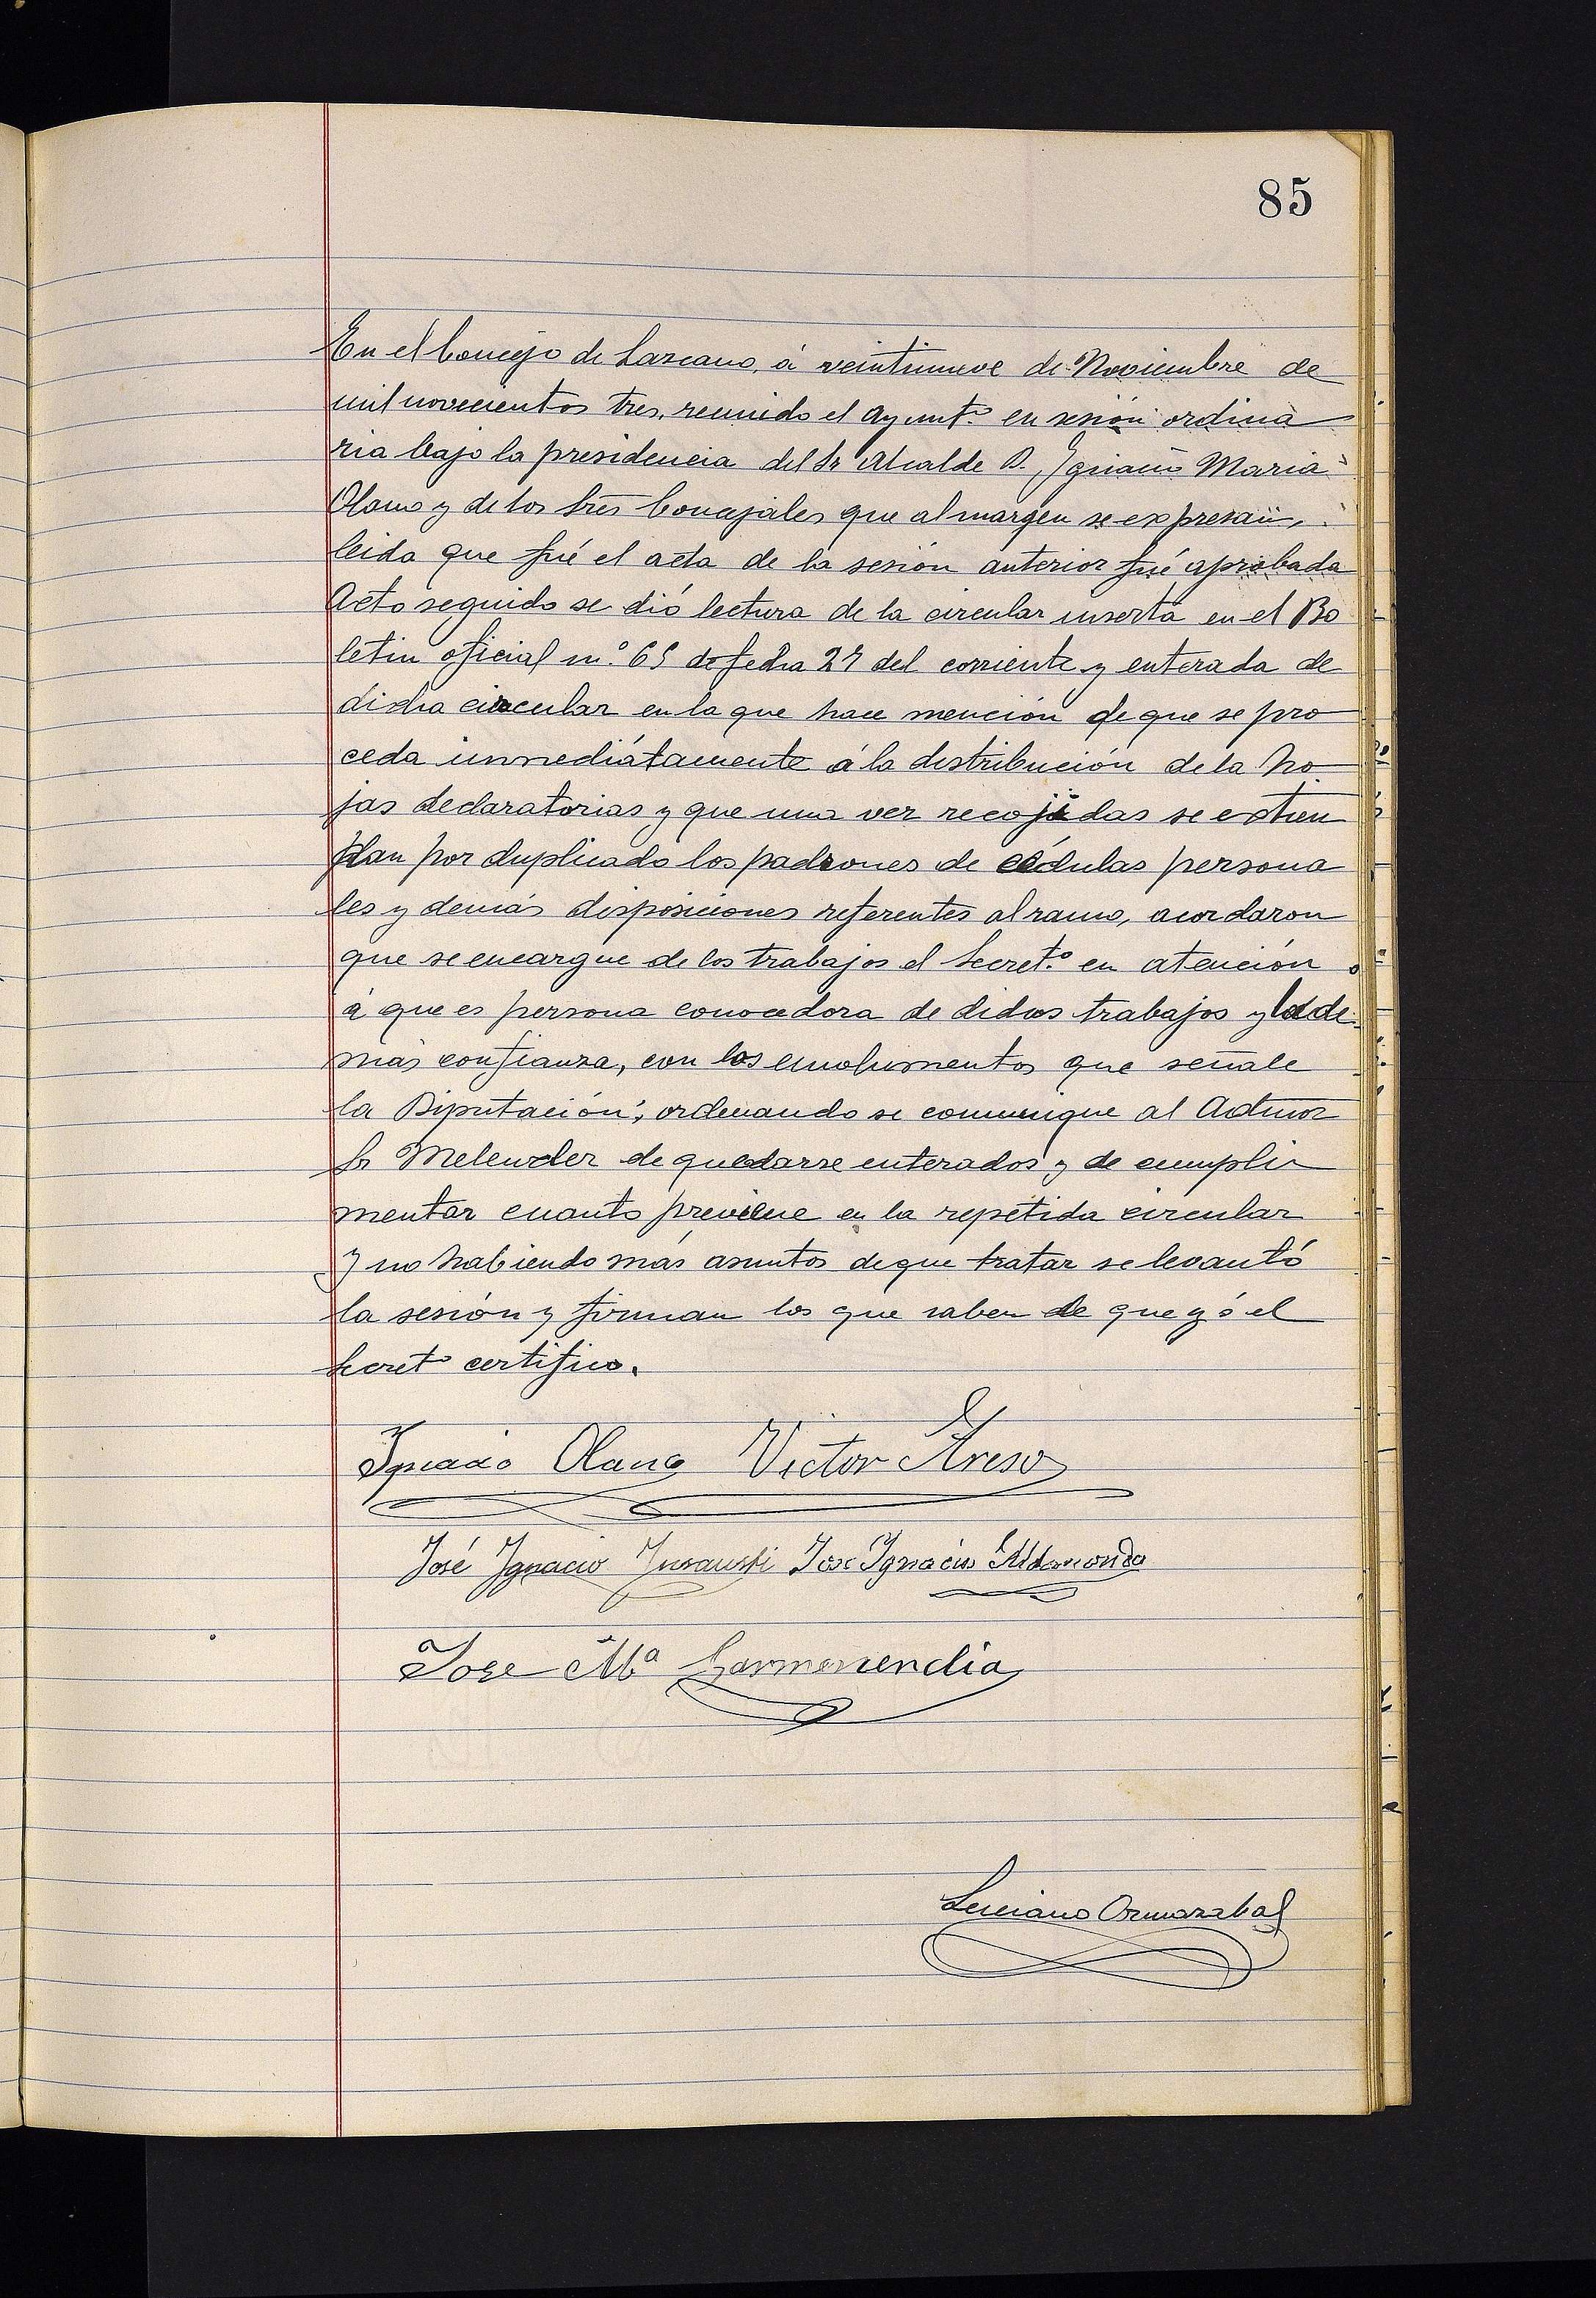 85
En el Concejo de Lazcano, á veintinueve de Noviembre de
mil novecientos tres, reunido el Ayunt.º en sesión ordina
ria bajo la presidencia del Sr Alcalde D. Ignacio Maria
Olano y de los Sres Concejales que al margen se expresan,
leida que fué el acta de la sesión anterior fué aprobada
Acto seguido se dió lectura de la circular inserta en el Bo
letin oficial n.º 65 de fecha 27 del corriente y enterada de
dicha circular en la que hace mención de que se pro
ceda inmediátamente á la distribución de la ho
jas declaratorias y que una vez recojidas se extien
dan por duplicado los padrones de cédulas persona
les y demás disposiciones referentes al ramo, acordaron
que se encargue de los trabajos el Secret.º en atención
á que es persona conocedora de dichos trabajos y la de
más confianza, con los emolumentos que señale
la Diputación, ordenando se comunique al Admor
Sr Melendez de quedarse enterados y de cumpli
mentar cuanto previene en la repetida circular
Y no habiendo más asuntos de que tratar se levantó
la sesión y firman los que saben de que yó el
Secretº certifico.
Ignacio Olano Victor Areso
José Ignacio Insausti José Ignacio Aldasoro
Jose Mª Garmenendia
Luciano Ormazabal